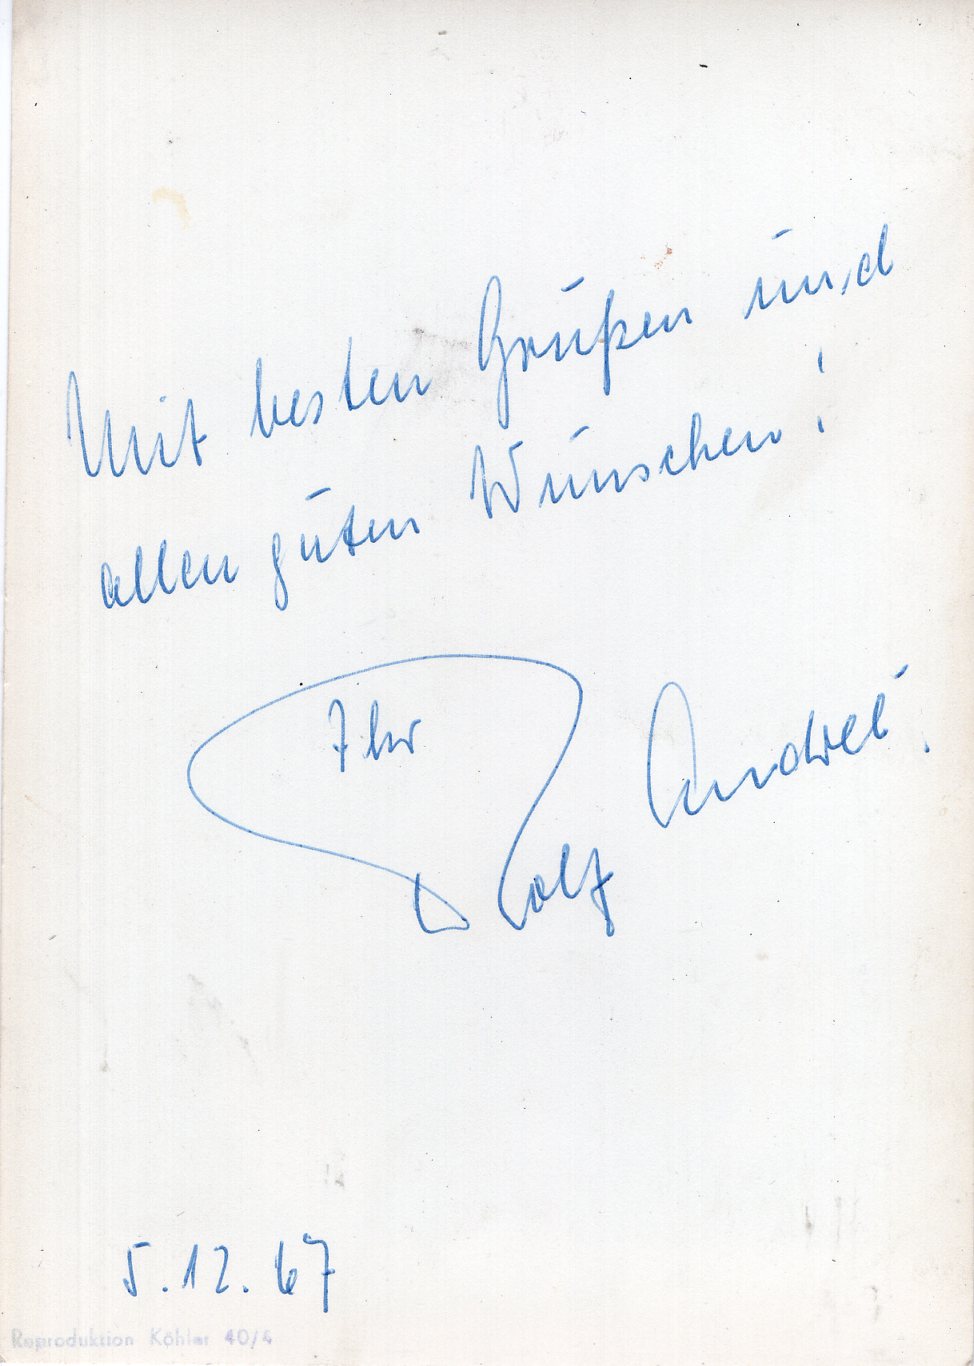 Mit besten Grüßen und
allen guten Wünschen!
Ihr
Rolf André
5.12.67
Reproduktion Köhler 40/4